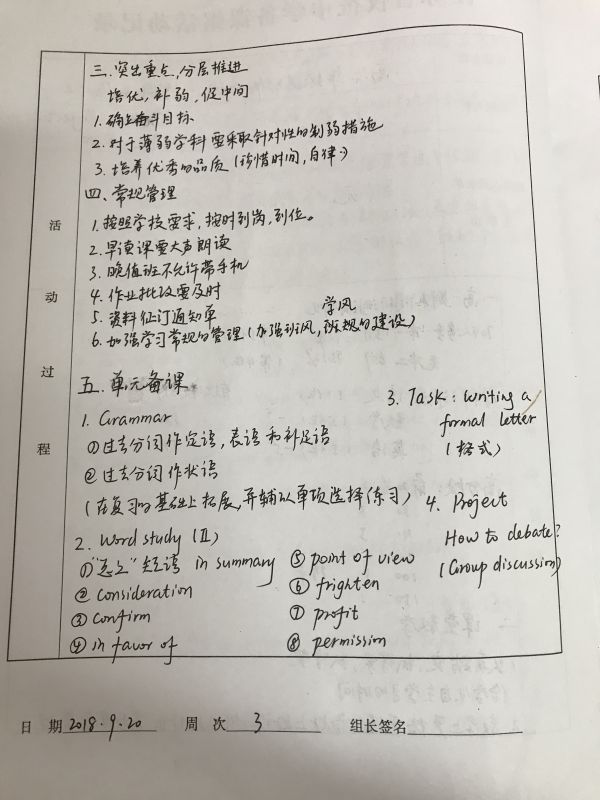 三.突出重点,分层推进
培优,补弱,促中间
1.确立奋斗目标
2.对于薄弱学科要采取针对性的制弱措施
3.培养优秀的品质(珍惜时间,自律..)
四、常规管理
1.按照学校要求,按时到岗,到位。
2.早读课要大声朗读
3.晚值班不允许带手机
4.作业批改要及时
5.资料征订通知单
学风
6.加强学习常规的管理(加强班风,班规的建设)
活动过程
五.单元备课.
1. Grammar
①过去分词作定语,表语和补足语
②过去分词作状语
(在复习的基础上拓展,并辅以单项选择练习)
2. Word study (Ⅱ)
①"总之"短语 in summary
② consideration
③ confirm
④ in favor of
⑤ point of view
⑥ frighten
⑦ profit
⑧ permission
3. Task: writing a
formal letter
(格式)
4. Project
How to debate?
(Group discussion)
日 期 2018.9.20 周 次 3 组长签名